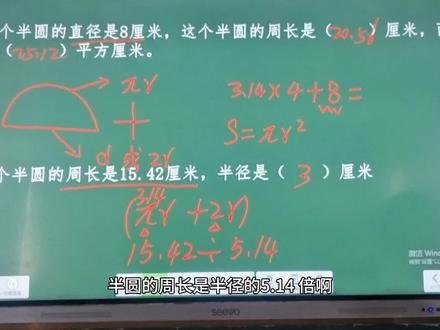 个半圆的直径是8厘米，这个半圆的周长是（20.56）厘米，面
（25.12）平方厘米。
πr
3.14×4+8=
S=πr²
d 或 2r
个半圆的周长是15.42厘米，半径是（ 3 ）厘米
3.14
(πr+2r)
15.42÷5.14
半圆的周长是半径的5.14 倍啊
seewo